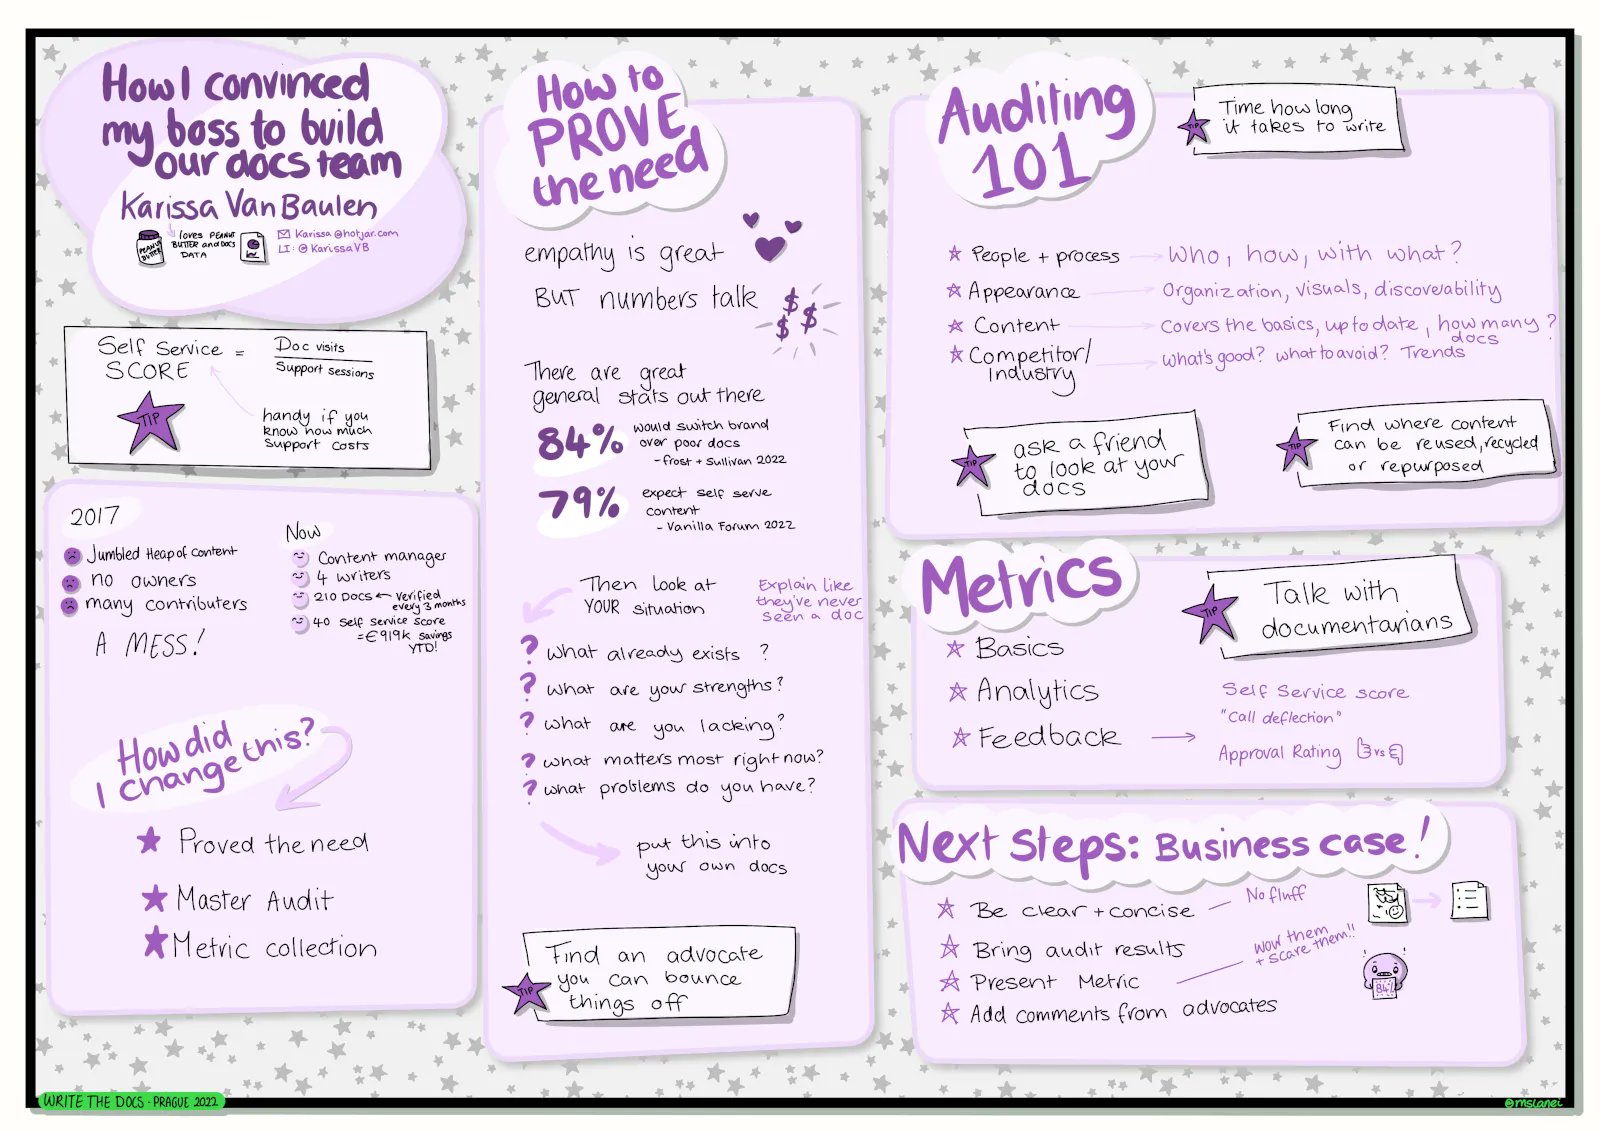 How I convinced
my boss to build
our docs team
Karissa Van Baulen
PEANUT
BUTTER
loves PEANUT
BUTTER and DOCS
DATA
Karissa@hotjar.com
LI: @KarissaVB
Self Service
SCORE
=
Doc visits
Support sessions
TIP
handy if you
know how much
support costs
2017
Jumbled Heap of content
no owners
many contributers
A MESS!
Now
Content manager
4 writers
210 DOCS ← verified
every 3 months
40 self service score
=€919k savings
YTD!
How did
I change this?
Proved the need
Master Audit
Metric collection
How to
PROVE
the need
empathy is great
BUT numbers talk
$ $ $
There are great
general stats out there
84%
would switch brand
over poor docs
- frost + Sullivan 2022
79%
expect self serve
content
- Vanilla Forum 2022
Then look at
YOUR situation
Explain like
they've never
seen a doc
? what already exists ?
? what are your strengths?
? what are you lacking?
? what matters most right now?
? what problems do you have?
put this into
your own docs
TIP
Find an advocate
you can bounce
things off
Auditing
101
TIP
Time how long
it takes to write
People + process → Who, how, with what?
Appearance → Organization, visuals, discoverability
Content → Covers the basics, up to date, how many ?
docs
Competitor/
Industry
→ What's good? what to avoid? Trends
TIP
ask a friend
to look at your
docs
TIP
Find where content
can be reused, recycled
or repurposed
Metrics
TIP
Talk with
documentarians
Basics
Analytics
Feedback →
Self Service score
"Call deflection"
Approval Rating
vs
Next Steps: Business case!
Be clear + concise – No fluff
Bring audit results
Present Metric – Wow them
+ scare them!!
Add comments from advocates
84%
WRITE THE DOCS · PRAGUE 2022
@mslanei